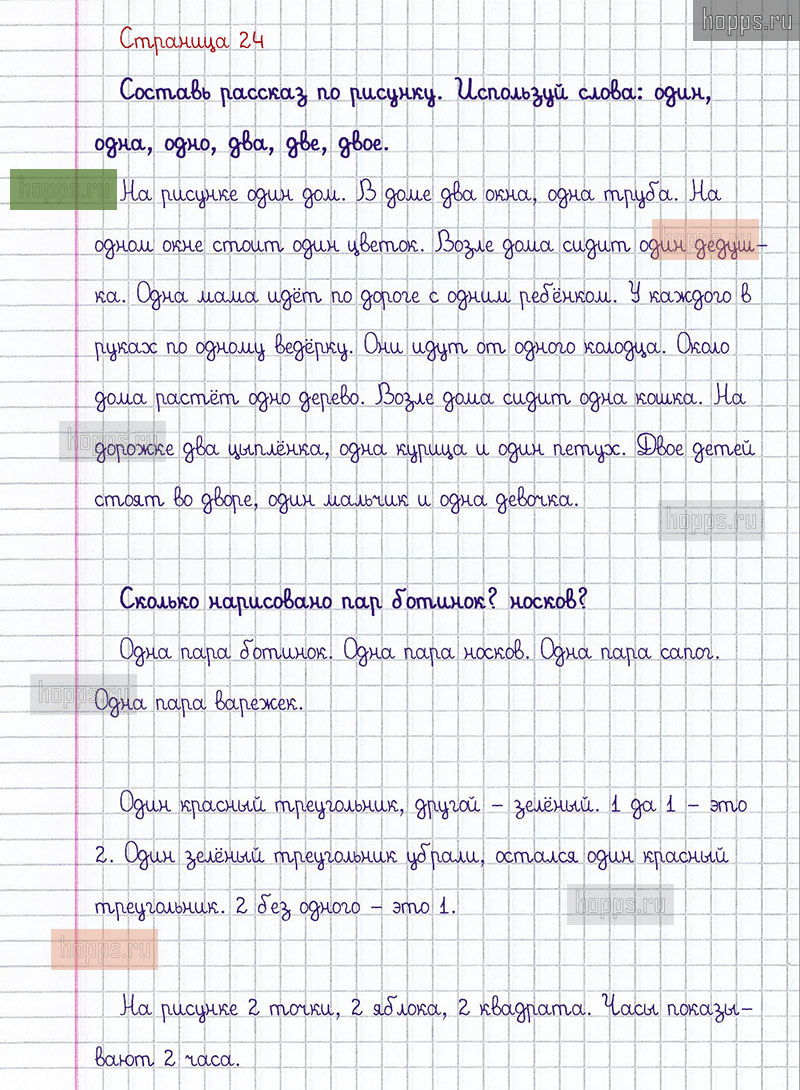 hopps.ru
Страница 24
Составь рассказ по рисунку. Используй слова: один,
одна, одно, два, две, двое.
hopps.ru
На рисунке один дом. В доме два окна, одна труба. На
одном окне стоит один цветок. Возле дома сидит один дедуш-
hopps.ru
ка. Одна мама идёт по дороге с одним ребёнком. У каждого в
руках по одному ведёрку. Они идут от одного колодца. Около
дома растёт одно дерево. Возле дома сидит одна кошка. На
hopps.ru
дорожке два цыплёнка, одна курица и один петух. Двое детей
стоят во дворе, один мальчик и одна девочка.
hopps.ru
Сколько нарисовано пар ботинок? носков?
Одна пара ботинок. Одна пара носков. Одна пара сапог.
hopps.ru
Одна пара варежек.
Один красный треугольник, другой – зелёный. 1 да 1 – это
2. Один зелёный треугольник убрали, остался один красный
треугольник. 2 без одного – это 1.
hopps.ru
hopps.ru
На рисунке 2 точки, 2 яблока, 2 квадрата. Часы показы-
вают 2 часа.